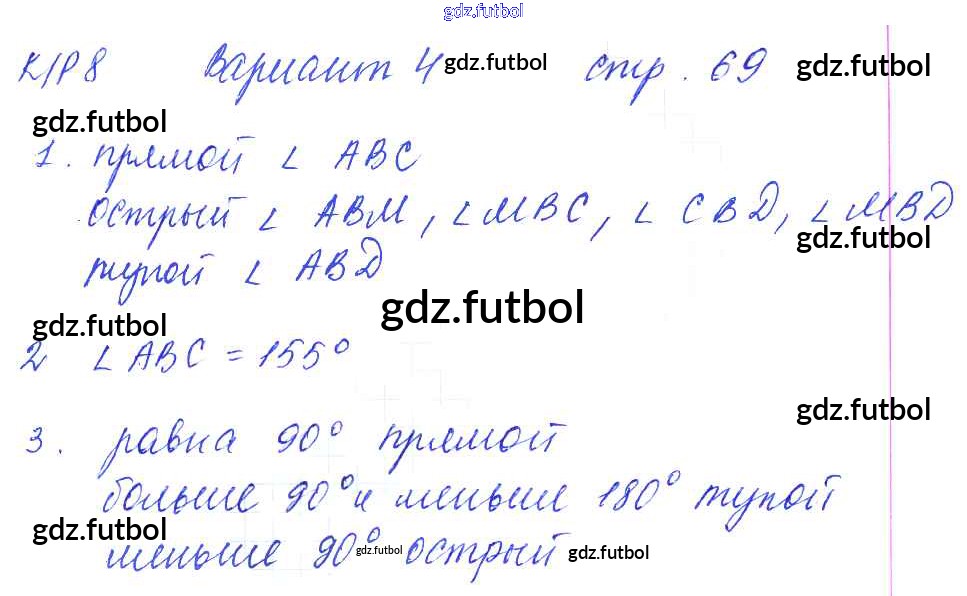 gdz.futbol
К/Р 8 Вариант 4 gdz.futbol стр. 69 gdz.futbol
gdz.futbol
1. прямой ∠ ABC
острый ∠ ABM, ∠ MBC, ∠ CBD, ∠ MBD
gdz.futbol
тупой ∠ ABD
gdz.futbol
gdz.futbol
2 ∠ ABC = 155°
gdz.futbol
3. равна 90° прямой
больше 90° и меньше 180° тупой
gdz.futbol
меньше 90° gdz.futbol острый gdz.futbol